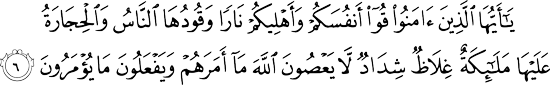 يَـٰٓأَيُّهَا ٱلَّذِينَ ءَامَنُوا۟ قُوٓا۟ أَنفُسَكُمْ وَأَهْلِيكُمْ نَارًا وَقُودُهَا ٱلنَّاسُ وَٱلْحِجَارَةُ
عَلَيْهَا مَلَـٰٓئِكَةٌ غِلَاظٌ شِدَادٌ لَّا يَعْصُونَ ٱللَّهَ مَآ أَمَرَهُمْ وَيَفْعَلُونَ مَا يُؤْمَرُونَ ٦